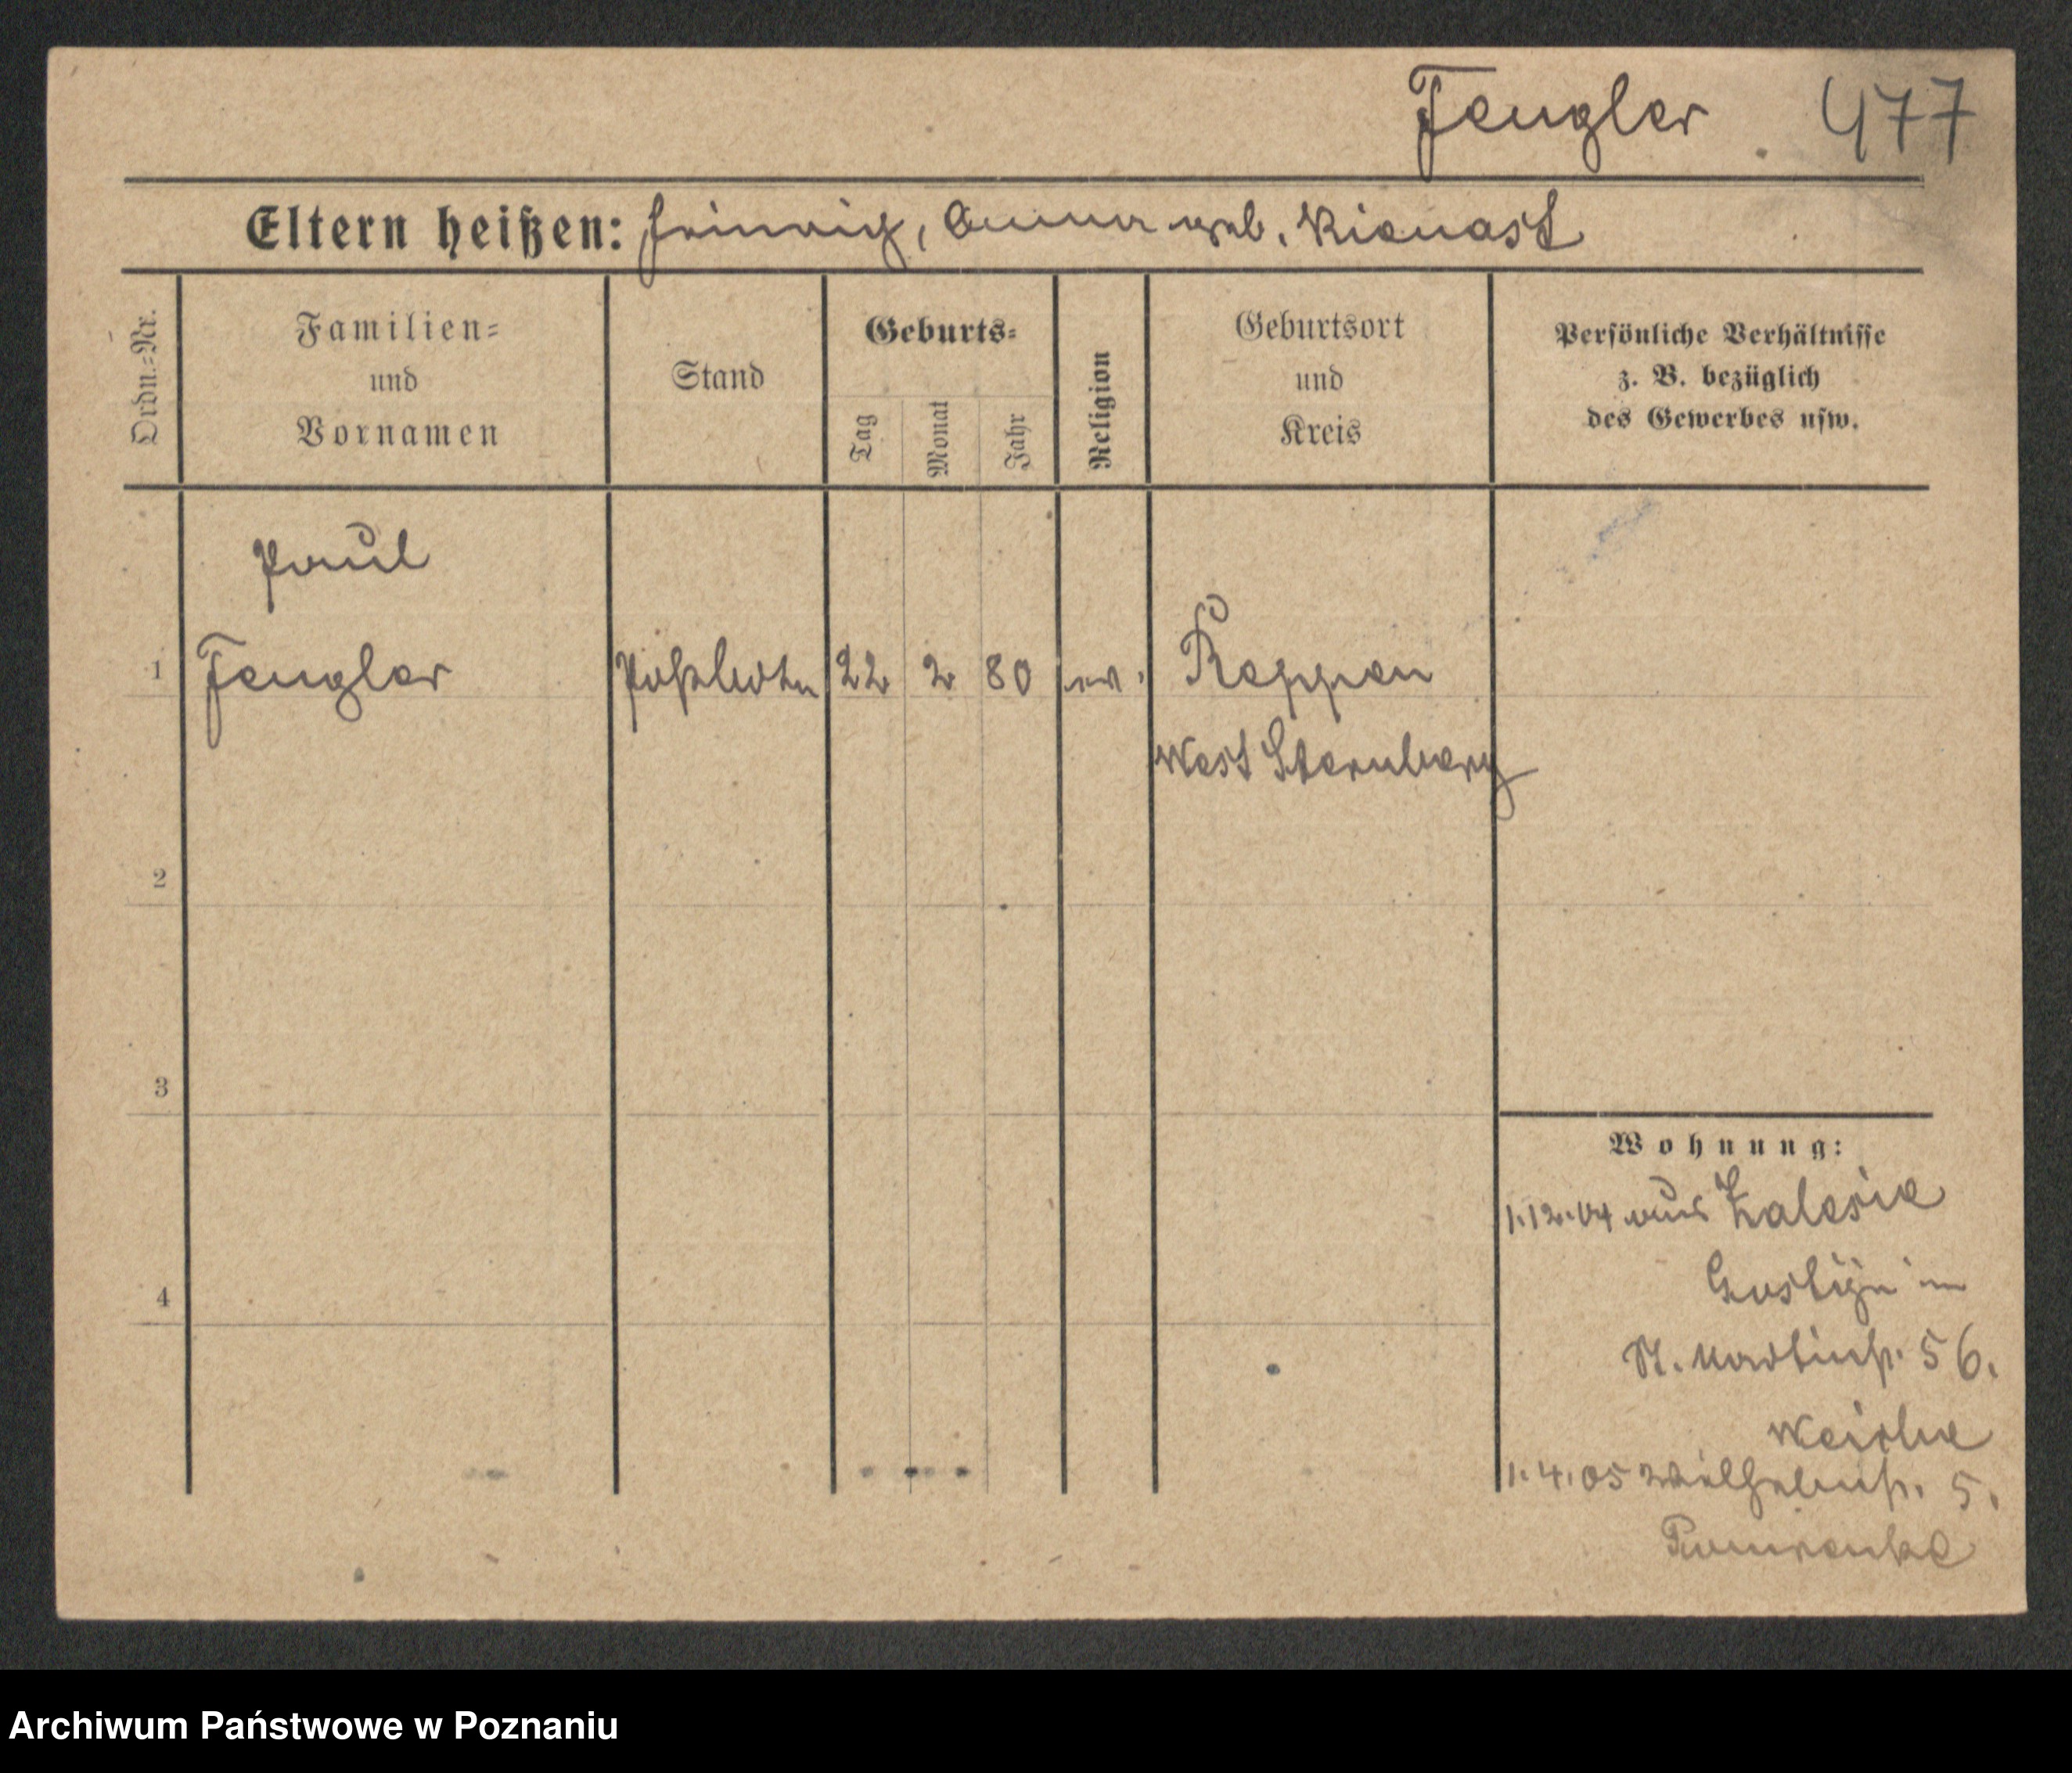 Fengler 477
Eltern heißen: Heinrich, Anna geb. Kienast
Ordn.=Nr.
Familien=
und
Vornamen
Stand
Geburts=
Tag
Monat
Jahr
Religion
Geburtsort
und
Kreis
Persönliche Verhältnisse
z. B. bezüglich
des Gewerbes usw.
Paul
1 Fengler 22 2 80 ev. Reppen
West Sternberg
2
3
4
Wohnung:
1.12.04 aus Zalesie
Gostyn in
St. Martinstr. 56.
1.4.05 Wilhelmstr. 5.
Archiwum Państwowe w Poznaniu